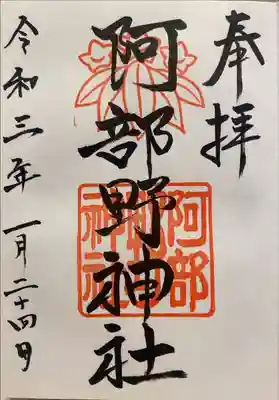 奉拝
阿部野神社
令和三年一月二十四日
阿部
野
神社